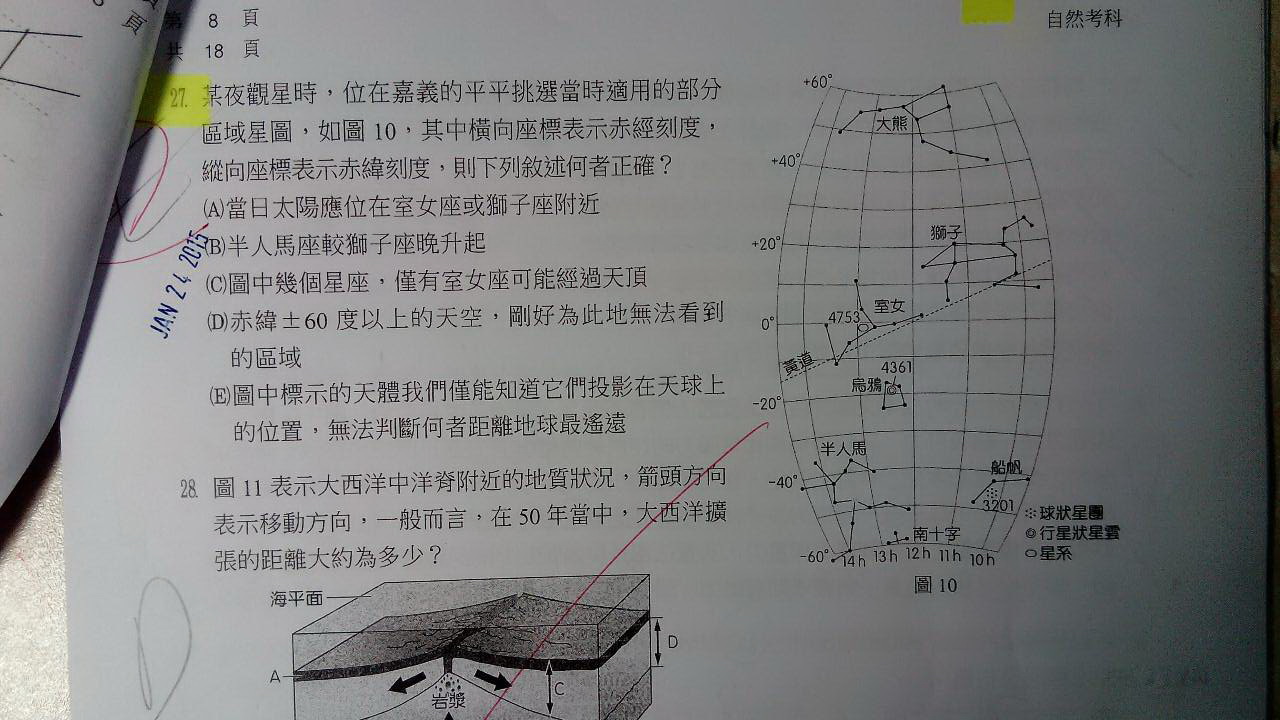 第 8 頁
共 18 頁
自然考科
頁
27. 某夜觀星時，位在嘉義的平平挑選當時適用的部分
區域星圖，如圖 10，其中橫向座標表示赤經刻度，
縱向座標表示赤緯刻度，則下列敘述何者正確？
(A)當日太陽應位在室女座或獅子座附近
(B)半人馬座較獅子座晚升起
(C)圖中幾個星座，僅有室女座可能經過天頂
(D)赤緯±60 度以上的天空，剛好為此地無法看到
的區域
(E)圖中標示的天體我們僅能知道它們投影在天球上
的位置，無法判斷何者距離地球最遙遠
JAN 24 2015
+60°
大熊
+40°
獅子
+20°
室女
4753
0°
黃道
4361
烏鴉
-20°
半人馬
船帆
-40°
3201
南十字
-60°
14h 13h 12h 11h 10h
球狀星團
行星狀星雲
星系
圖 10
28. 圖 11 表示大西洋中洋脊附近的地質狀況，箭頭方向
表示移動方向，一般而言，在 50 年當中，大西洋擴
張的距離大約為多少？
海平面
D
A
C
岩漿